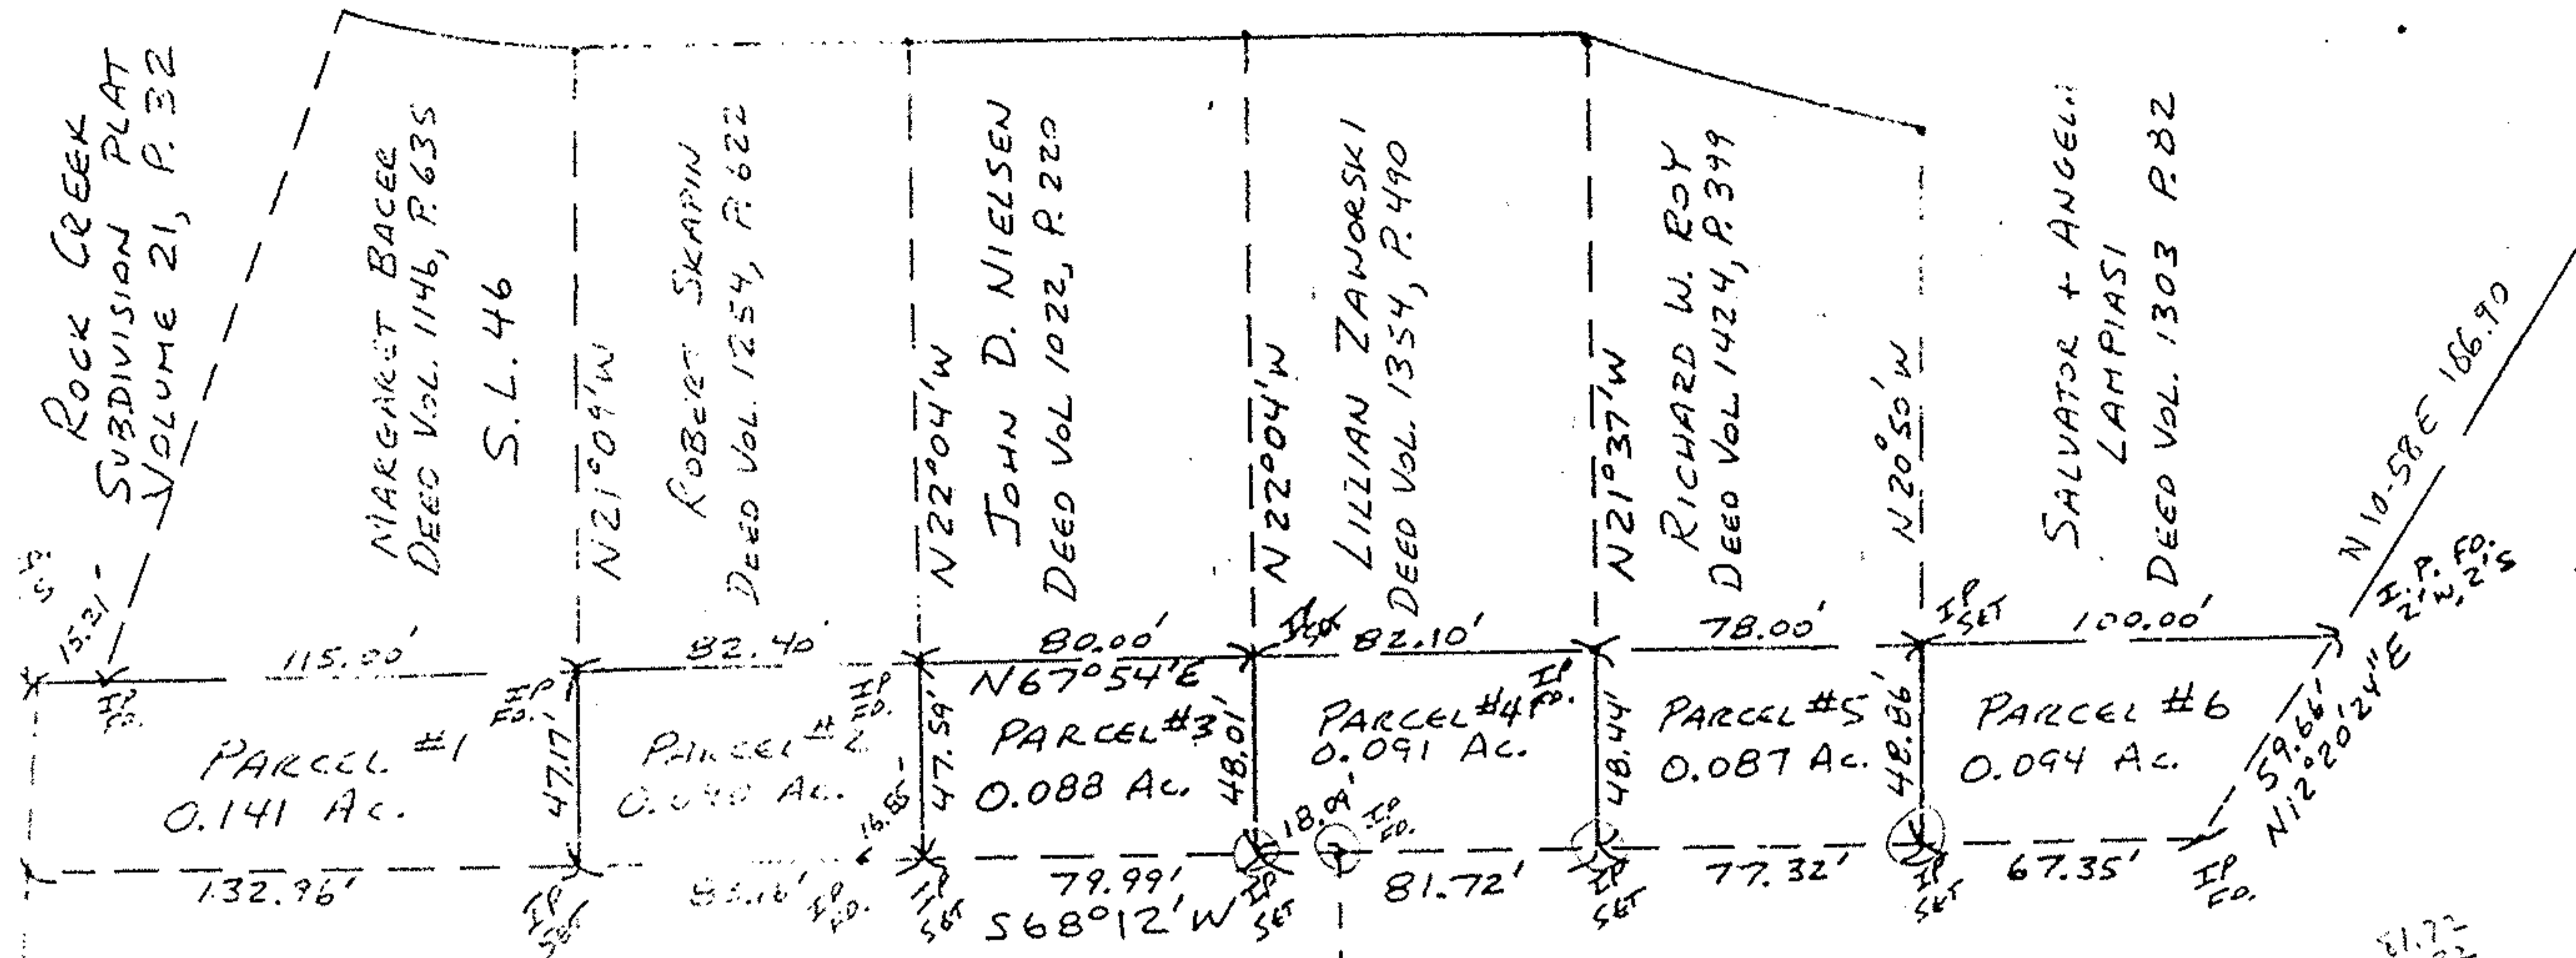 ROCK CREEK
SUBDIVISION PLAT
VOLUME 21, P. 32
MARGARET BACER
DEED VOL. 1146, P. 635
S. L. 46
N21°09'W
ROBERT SKAPIN
DEED VOL. 1254, P. 622
N22°04'W
JOHN D. NIELSEN
DEED VOL 1022, P. 220
N22°04'W
LILLIAN ZAWORSKI
DEED VOL. 1354, P. 490
N21°37'W
RICHARD W. ROY
DEED VOL. 1424, P. 399
N20°50'W
SALVATOR + ANGELA
LAMPIASI
DEED VOL. 1303 P. 82
N 10-58 E 166.90
I. P. FD.
.2'N, 2'S
15.21
115.00'
82.40'
80.00'
N67°54'E
IP SET
82.10'
78.00'
IP SET
100.00'
IP FD.
IP FD.
IP FD.
IP FD.
PARCEL #1
0.141 Ac.
47.17'
PARCEL #2
Ac.
16.85
47.59'
PARCEL #3
0.088 Ac.
48.01'
PARCEL #4
0.091 Ac.
18.09'
IP FD.
48.44'
PARCEL #5
0.087 Ac.
48.86'
PARCEL #6
0.094 Ac.
59.66'
N12°20'24"E
132.96'
IP SET
IP FD.
IP SET
79.99'
S68°12'W
IP SET
81.72'
IP SET
77.32'
IP SET
67.35'
IP FD.
81.72